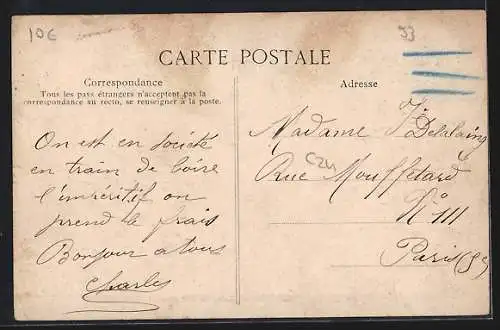 10€
33
CARTE POSTALE
Correspondance
Tous les pays étrangers n'acceptent pas la
correspondance au recto, se renseigner à la poste.
Adresse
On est en société
en train de boire
l'impéritif on
prend le frais
Bonjour a tous
Charles
Madame Delalaing
Rue Mouffetard
N° 111
Paris (5e)